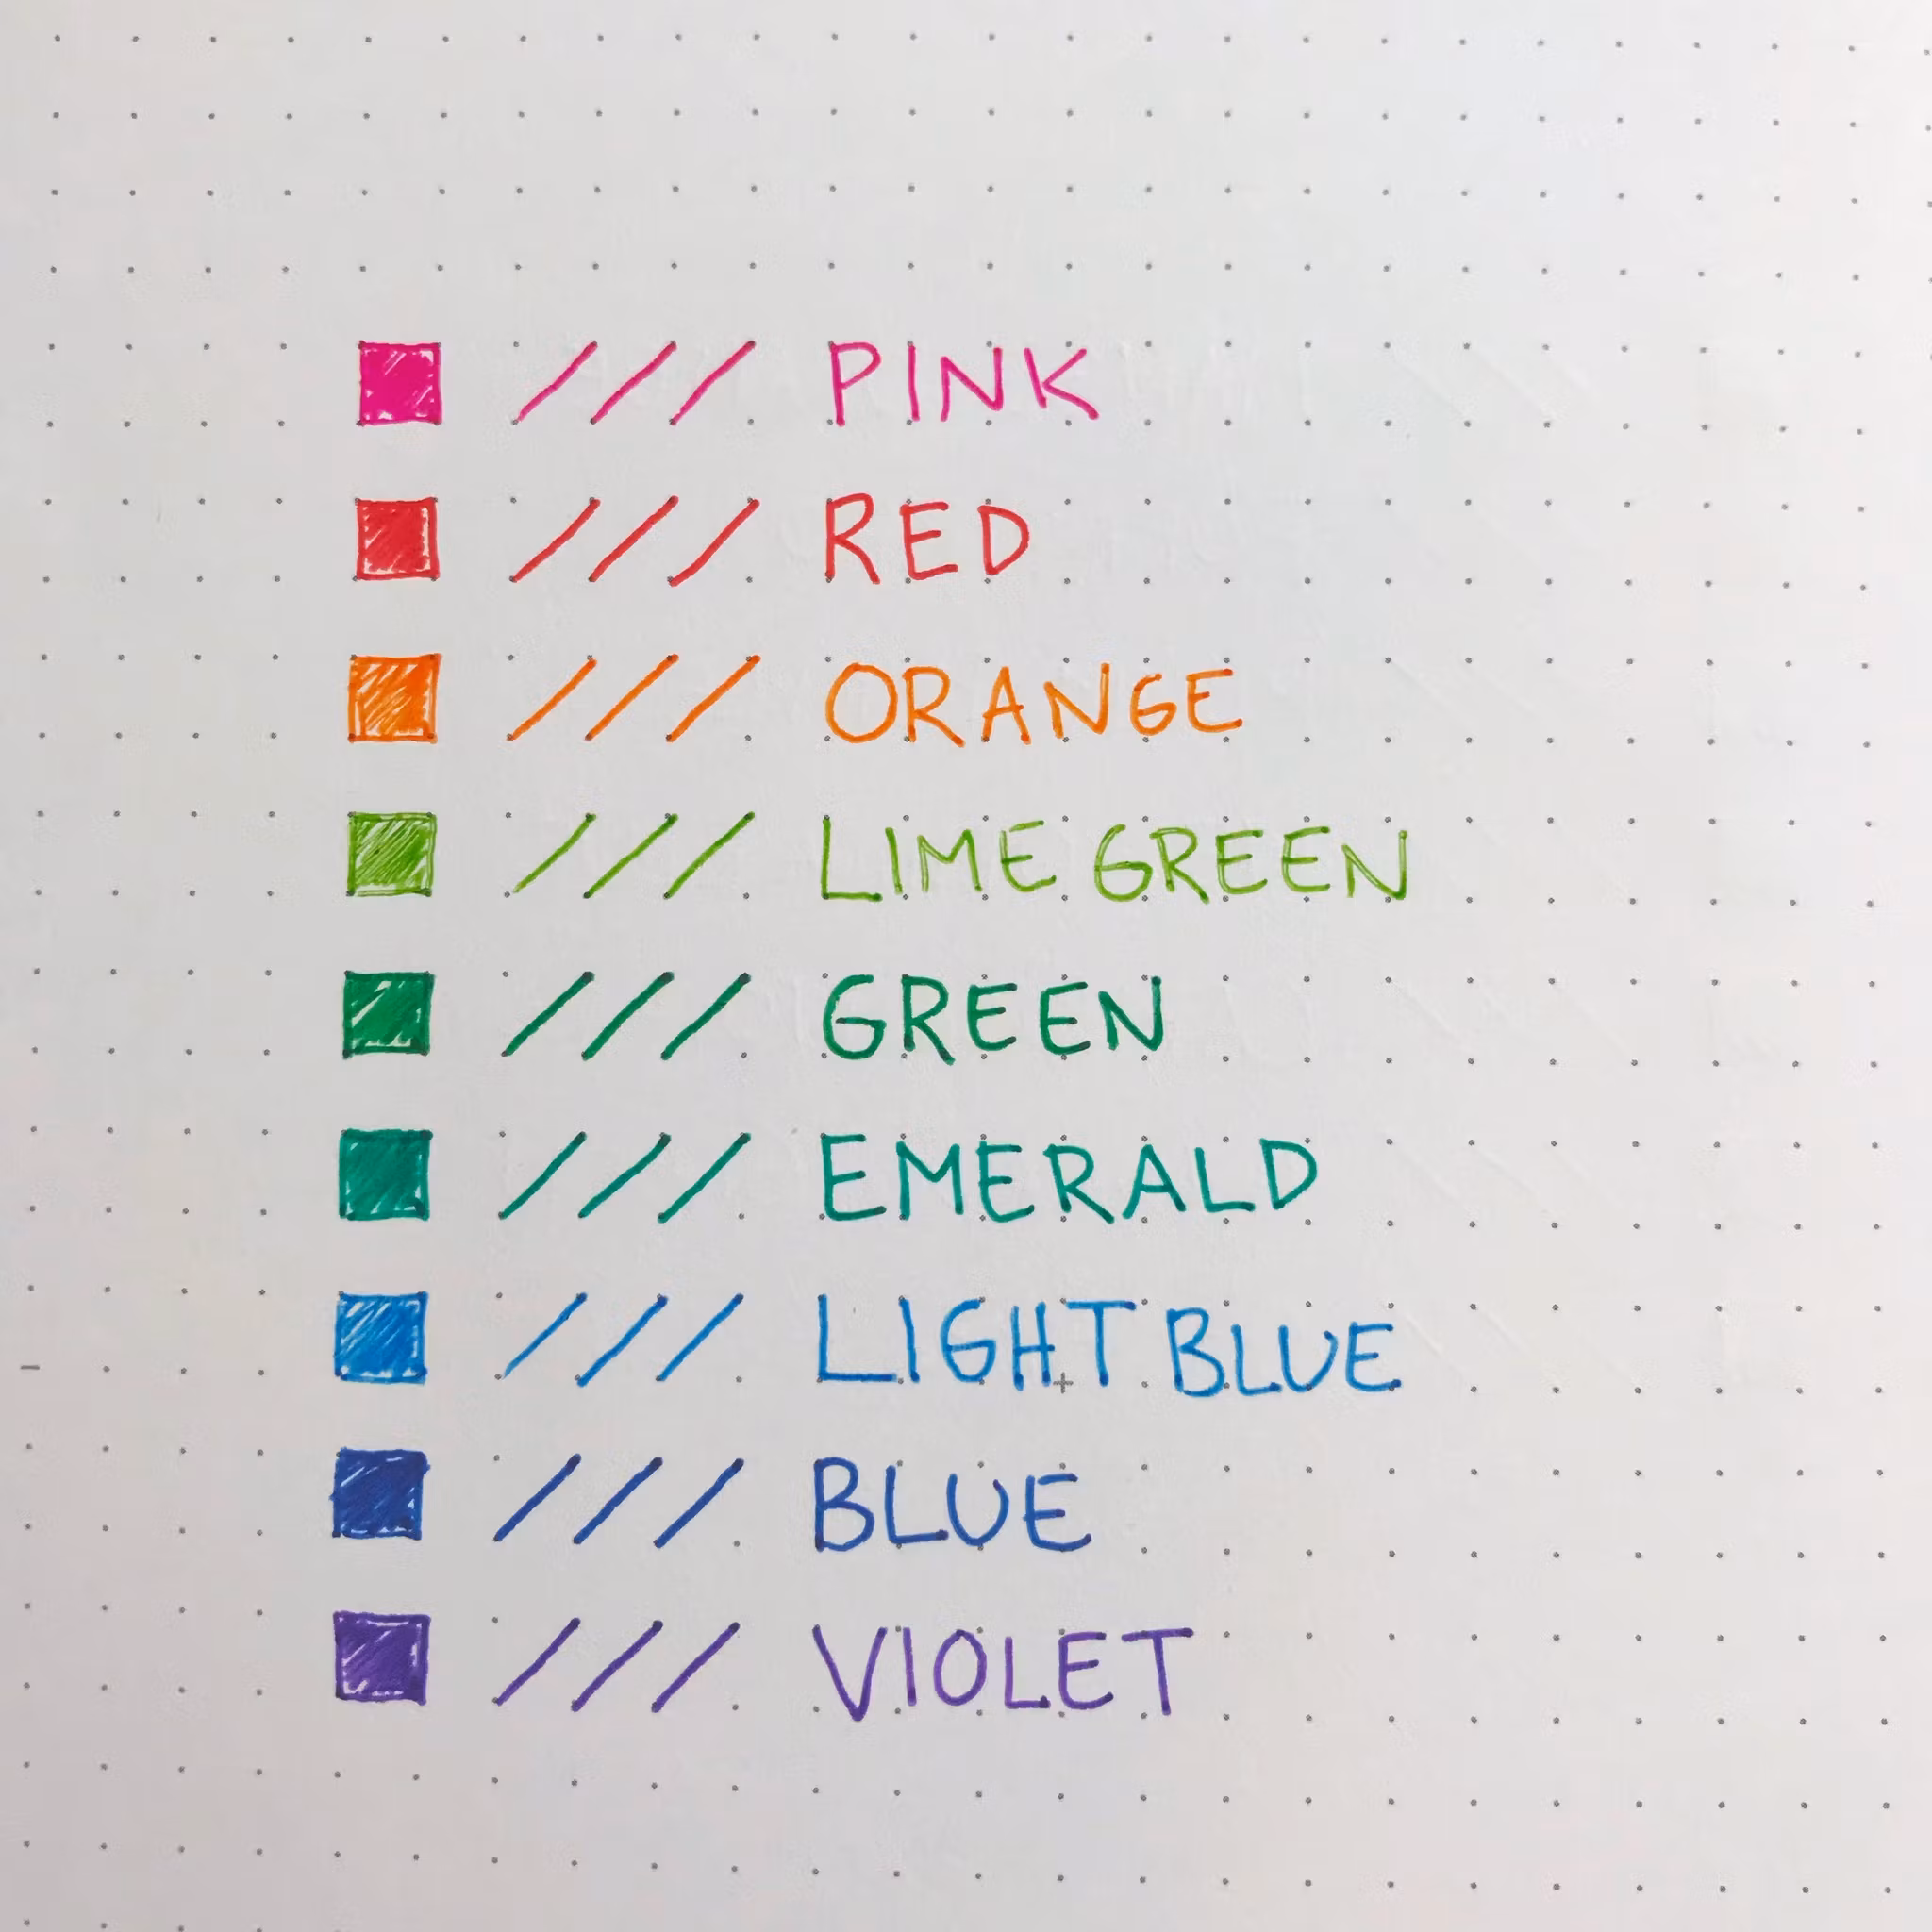 PINK
RED
ORANGE
LIME GREEN
GREEN
EMERALD
LIGHT BLUE
BLUE
VIOLET